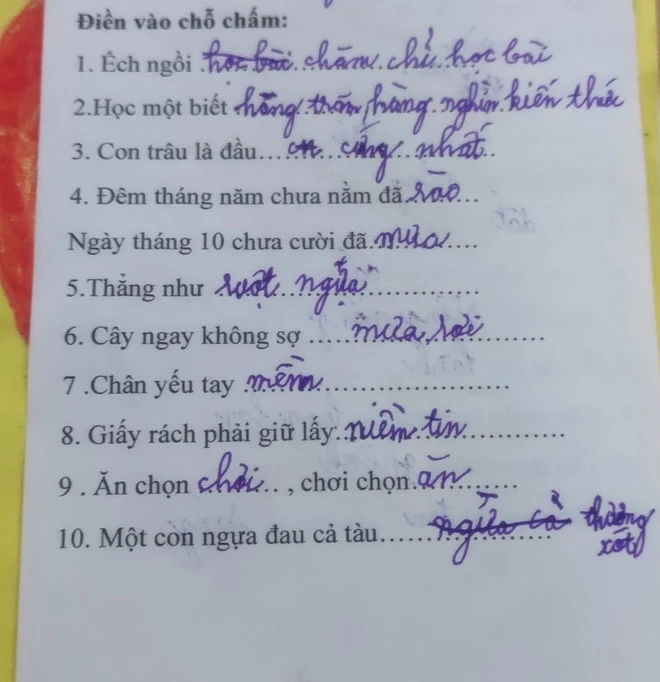 Điền vào chỗ chấm:
1. Ếch ngồi học bài chăm chỉ học bài
2.Học một biết hàng trăm hàng nghìn kiến thức
3. Con trâu là đầu... cứng nhất..
4. Đêm tháng năm chưa nằm đã sáo...
Ngày tháng 10 chưa cười đã.mưa....
5.Thẳng như ruột ngựa
6. Cây ngay không sợ .....mưa rơi
7 .Chân yếu tay mềm
8. Giấy rách phải giữ lấy..niềm tin
9 . Ăn chọn chơi.. , chơi chọn.ăn
10. Một con ngựa đau cả tàu......ngựa cả thương
xót